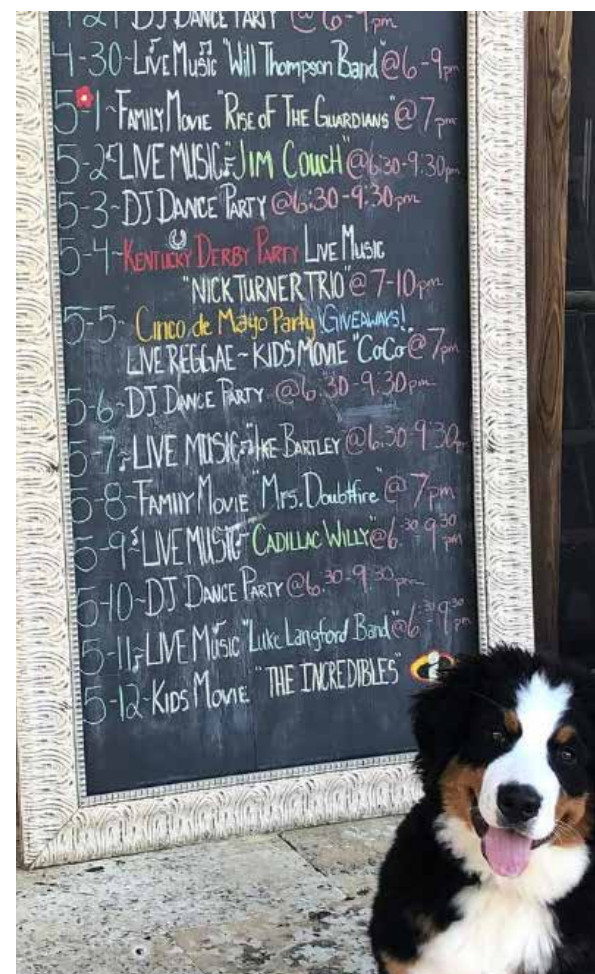 DJ DANCE PARTY @ 6-9pm
4-30~LIVE MUSIC "Will Thompson Band" @6-9pm
5-1~FAMILY MOVIE "RISE OF THE GUARDIANS" @7pm
5-2~LIVE MUSIC~"JIM COUCH" @6:30-9:30pm
5-3~DJ DANCE PARTY @6:30-9:30pm
5-4~KENTUCKY DERBY PARTY LIVE MUSIC
"NICK TURNER TRIO" @ 7-10pm
5-5~ Cinco de Mayo Party GIVEAWAYS!
LIVE REGGAE~KIDS MOVIE "COCO" @7pm
5-6~DJ DANCE PARTY @6:30-9:30pm
5-7~LIVE MUSIC~ BARTLEY @6:30-9:30pm
5-8~FAMILY MOVIE "Mrs. Doubtfire" @7pm
5-9~LIVE MUSIC~"CADILLAC WILLY" @6:30-9:30pm
5-10~DJ DANCE PARTY @6:30-9:30pm
5-11~LIVE MUSIC "Luke Langford Band" @6:30-9:30pm
5-12~KIDS MOVIE "THE INCREDIBLES"